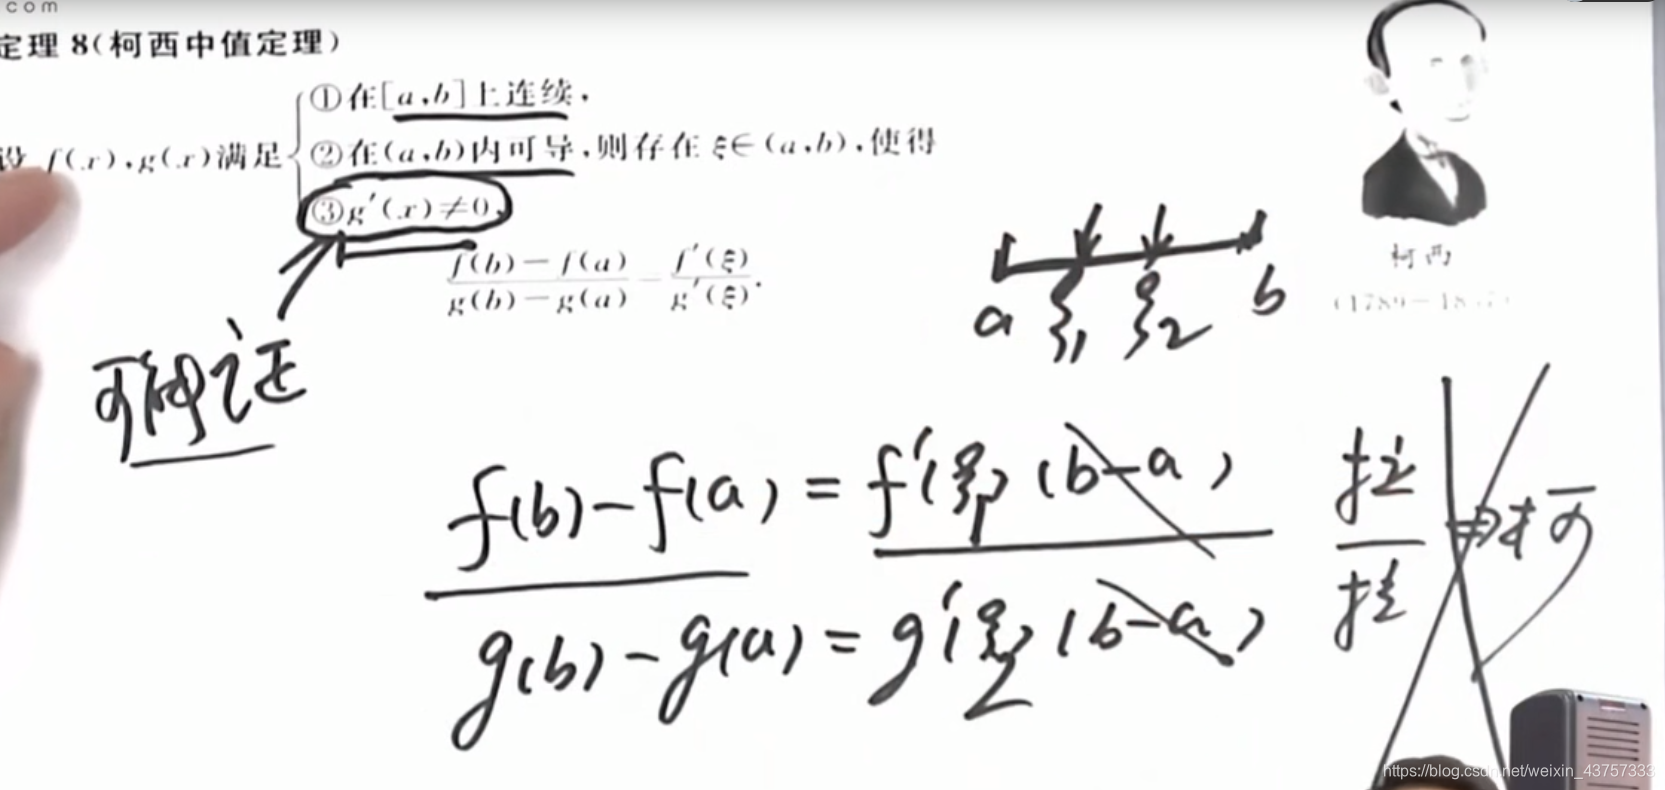 com
定理 8(柯西中值定理)
①在[a,b]上连续,
设 f(x),g(x)满足 ②在(a,b)内可导,则存在 ξ∈(a,b),使得
③g′(x)≠0,
f(b)-f(a) / g(b)-g(a) = f′(ξ) / g′(ξ).
柯西
a ξ1 ξ2 b
f(b)-f(a) = f′(ξ1)(b-a)
g(b)-g(a) = g′(ξ2)(b-a)
拉
拉
⇒柯
https://blog.csdn.net/weixin_43757333